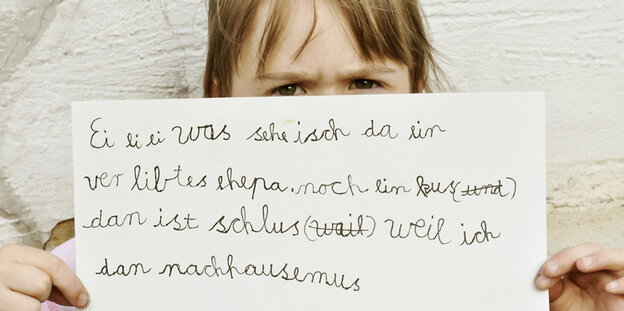 Ei ei ei was sehe isch da ein
ver libtes ehepa. noch ein kus (und)
dan ist schlus (wail) weil ich
dan nachhausemus